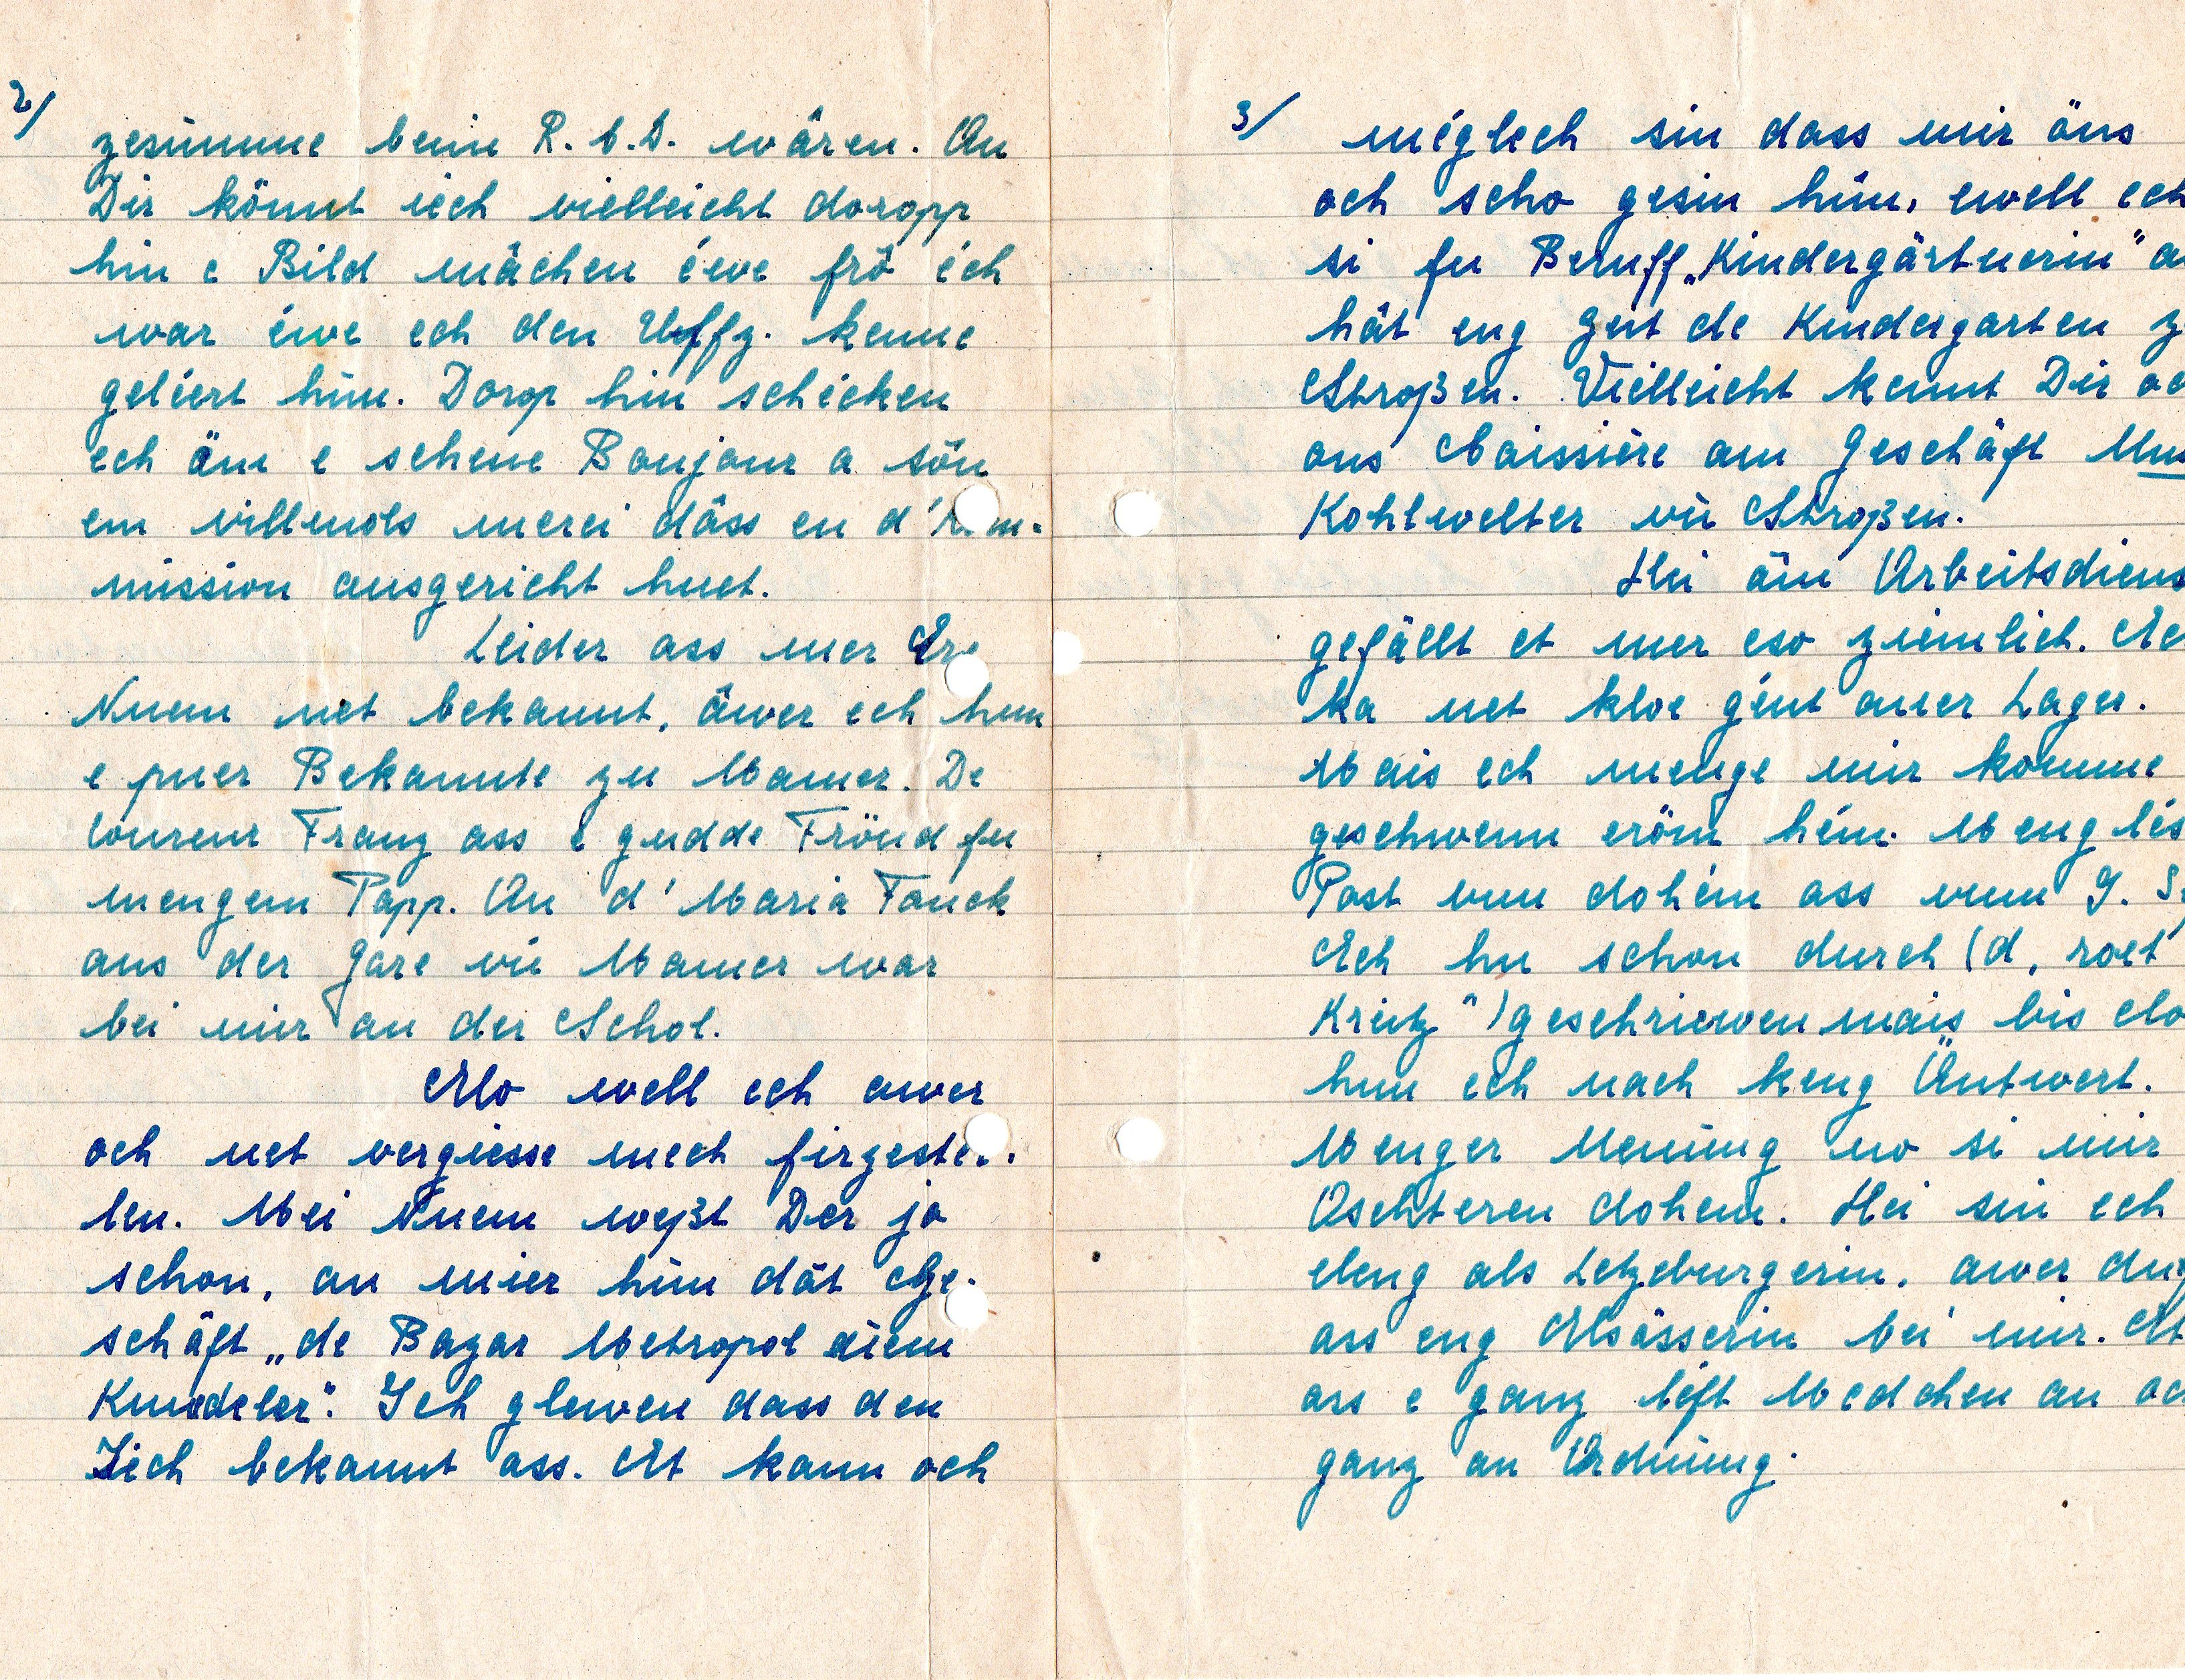 2/
zesumme beim R.A.D. wâren. An
Dir könnt iech vielleicht doropp
hin e Bild mâchen éwe frô éch
war éwe ech den Uffz. kenne
geléert hun. Dorop hin schécken
ech äm e schene Bonjour a sôn
em villmols merci dâss en d'Kom-
mission ausgericht huet.
Leider ass mer Ere
Numm net bekannt, âwer ech hun
e puer Bekannte zu Mamer. De
Coureur Franz ass e gudde Frönd fu
mengem Papp. An d'Maria Fonck
aus der Gare vu Mamer war
bei mir an der Schol.
Elo well ech awer
och net vergiesse mech firzestel-
len. Mei Numm weßt Der jo
schon, an mier hun dât Ge-
schäft „de Bazar Metropol
Knuedeler". Ich glewen dass den
Iech bekannt ass. Et kann och
3/
méglech sin dass mir äns
och scho gesin hun, well ech
si fu Beruff „Kindergärtnerin"
hât eng Zeit de Kindergarten
Stroßen. Vielleicht kennt Dir
ons Caissière am Geschäft
Kohlwelter vu Stroßen.
Hei äm
gefällt et mer eso ziemlich.
ka net kloe gént aner Lager.
Mais ech menge mir komme
geschwenn eröm hém. Meng
Post vun dohém ass vum 9.
Ech hu schon durch (d, roet
Kreitz") geschriewen mais bis elo
hun ech nach keng Äntwert.
Menger Menung no si mir
Oschteren dohem. Hei sin ech
eleng als Letzeburgerin, awer
ass eng Elsässerin bei mir. Et
ass e ganz léft Medchen an
ganz an Ordnung.